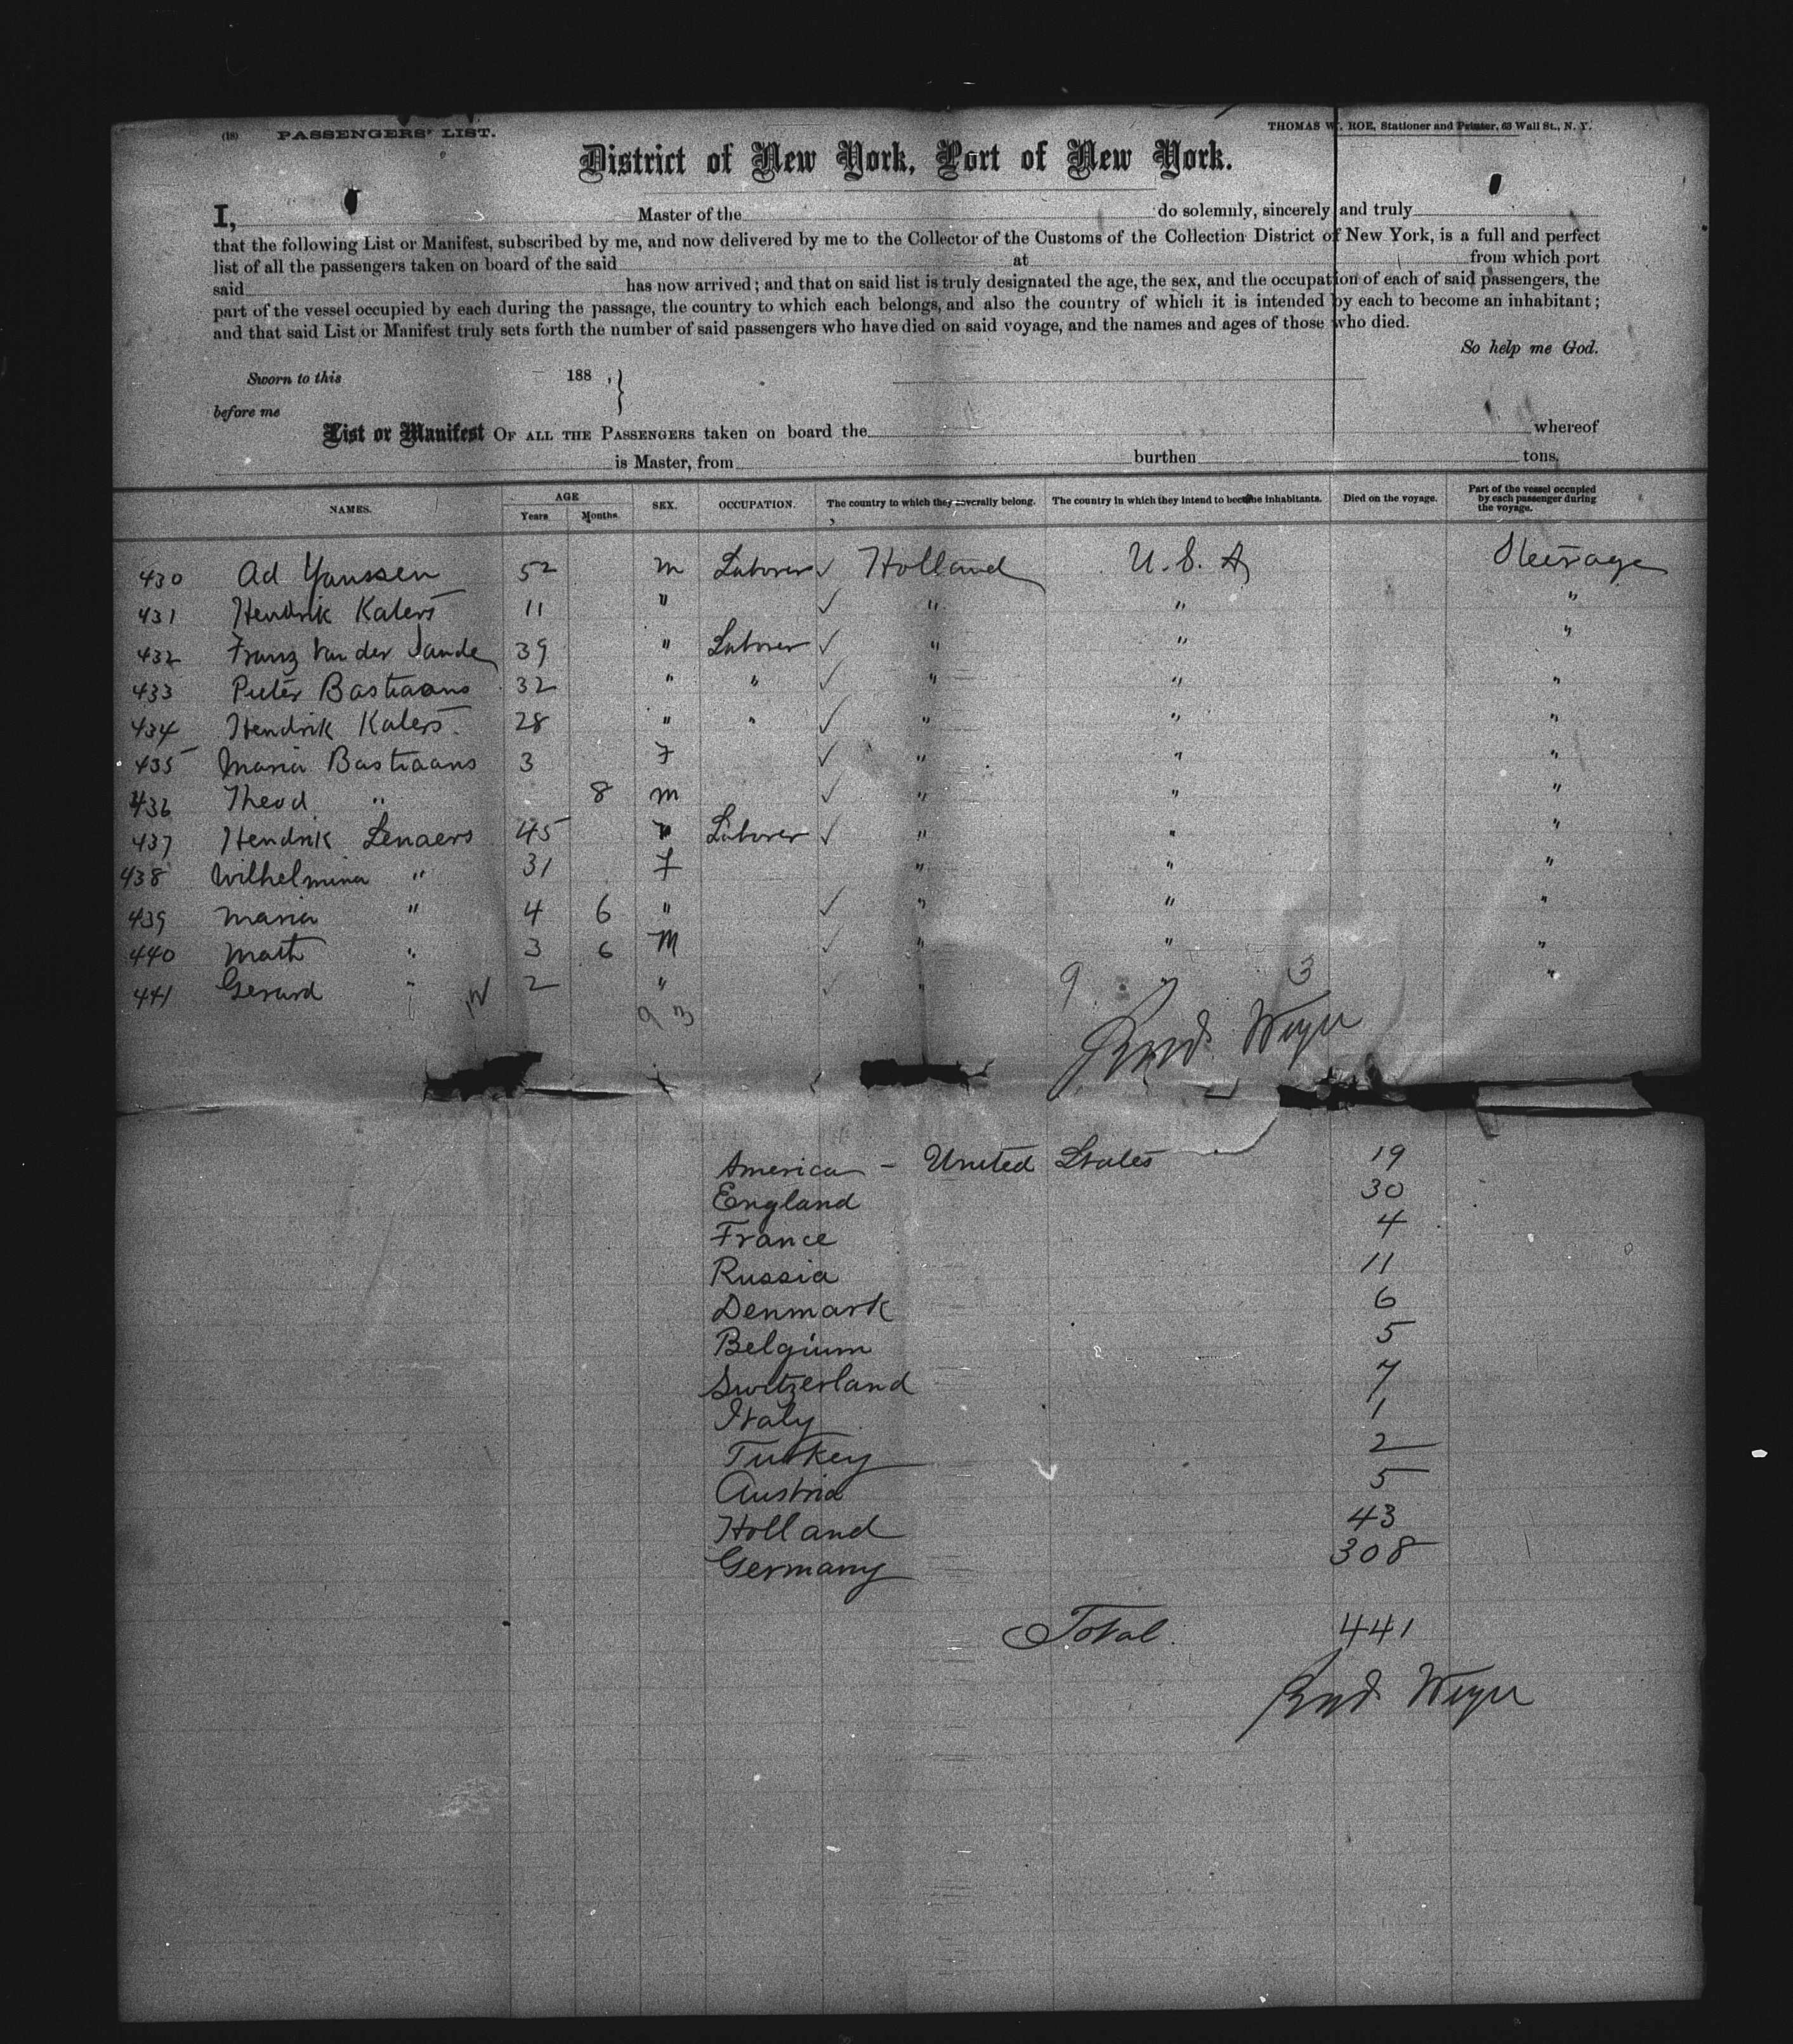 (18) PASSENGERS' LIST. THOMAS W. ROE, Stationer and Printer, 63 Wall St., N. Y.
District of New York, Port of New York.
I, Master of the do solemnly, sincerely and truly
that the following List or Manifest, subscribed by me, and now delivered by me to the Collector of the Customs of the Collection District of New York, is a full and perfect
list of all the passengers taken on board of the said at from which port
said has now arrived; and that on said list is truly designated the age, the sex, and the occupation of each of said passengers, the
part of the vessel occupied by each during the passage, the country to which each belongs, and also the country of which it is intended by each to become an inhabitant;
and that said List or Manifest truly sets forth the number of said passengers who have died on said voyage, and the names and ages of those who died.
So help me God.
Sworn to this 188 ,
before me
List or Manifest OF ALL THE PASSENGERS taken on board the whereof
is Master, from burthen tons,
NAMES. AGE Years Months. SEX. OCCUPATION. The country to which they severally belong. The country in which they intend to become inhabitants. Died on the voyage. Part of the vessel occupied by each passenger during the voyage.
430 Ad Yanssen 52 m Laborer ✓ Holland U. S. A Steerage
431 Hendrik Katers 11 " ✓ " " "
432 Franz Van der Sande 39 " Laborer ✓ " " "
433 Pieter Bastiaans 32 " " ✓ " " "
434 Hendrik Katers 28 " " ✓ " " "
435 Maria Bastiaans 3 F ✓ " " "
436 Theod " 8 m ✓ " " "
437 Hendrik Lenaers 45 " Laborer ✓ " " "
438 Wilhelmina " 31 F " " "
439 Maria " 4 6 " ✓ " " "
440 Math " 3 6 M ✓ " " "
441 Gerard " 2 " ✓ " " "
9 3 9 3
America - United States 19
England 30
France 4
Russia 11
Denmark 6
Belgium 5
Switzerland 7
Italy 1
Turkey 2
Austria 5
Holland 43
Germany 308
Total. 441